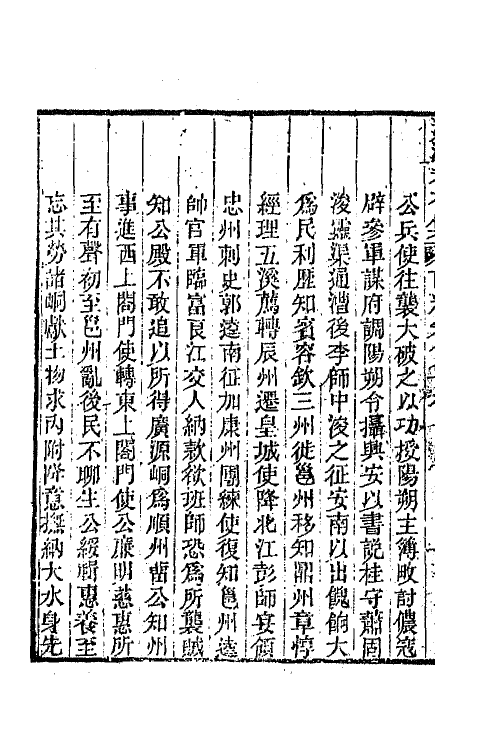 公兵使往襲大破之以功授陽朔主簿敗討儂寇
辟參軍謀府調陽朔令攝興安以書說桂守蕭固
浚靈渠通漕後李師中浚之征安南以出餽餉大
爲民利歷知賓容欽三州徙邕州移知鼎州章惇
經理五溪薦轉辰州遷皇城使降北江彭師宴領
忠州刺史郭逵南征加康州團練使復知邕州逵
帥官軍臨富良江交人納款欲班師恐爲所襲賊
知公殿不敢追以所得廣源峒爲順州畱公知州
事進西上閤門使轉東上閤門使公廉明慈惠所
至有聲初至邕州亂後民不聊生公緩輯惠養至
忘其勞諸峒獻土物求內附降意撫納大水身先